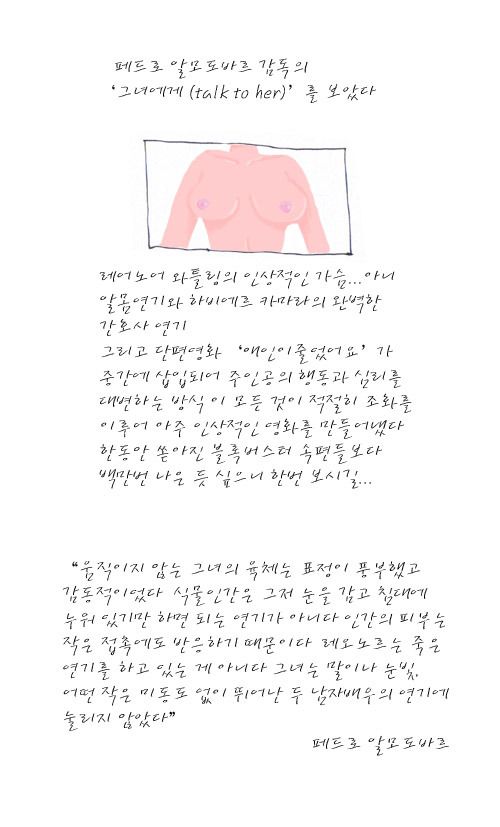 페드로 알모도바르 감독의
'그녀에게 (talk to her)' 를 보았다
레어노어 와틀링의 인상적인 가슴...아니
알몸연기와 하비에르 카마라의 완벽한
간호사 연기
그리고 단편영화 '애인이줄었어요' 가
중간에 삽입되어 주인공의 행동과 심리를
대변하는 방식 이 모든 것이 적절히 조화를
이루어 아주 인상적인 영화를 만들어냈다
한동안 쏟아진 블록버스터 속편들보다
백만번 나은 듯 싶으니 한번 보시길...
"움직이지 않는 그녀의 육체는 표정이 풍부했고
감동적이었다 식물인간은 그저 눈을 감고 침대에
누워 있기만 하면 되는 연기가 아니다 인간의 피부는
작은 접촉에도 반응하기 때문이다 레오노르는 죽은
연기를 하고 있는 게 아니다 그녀는 말이나 눈빛,
어떤 작은 미동도 없이 뛰어난 두 남자배우의 연기에
눌리지 않았다"
페드로 알모도바르